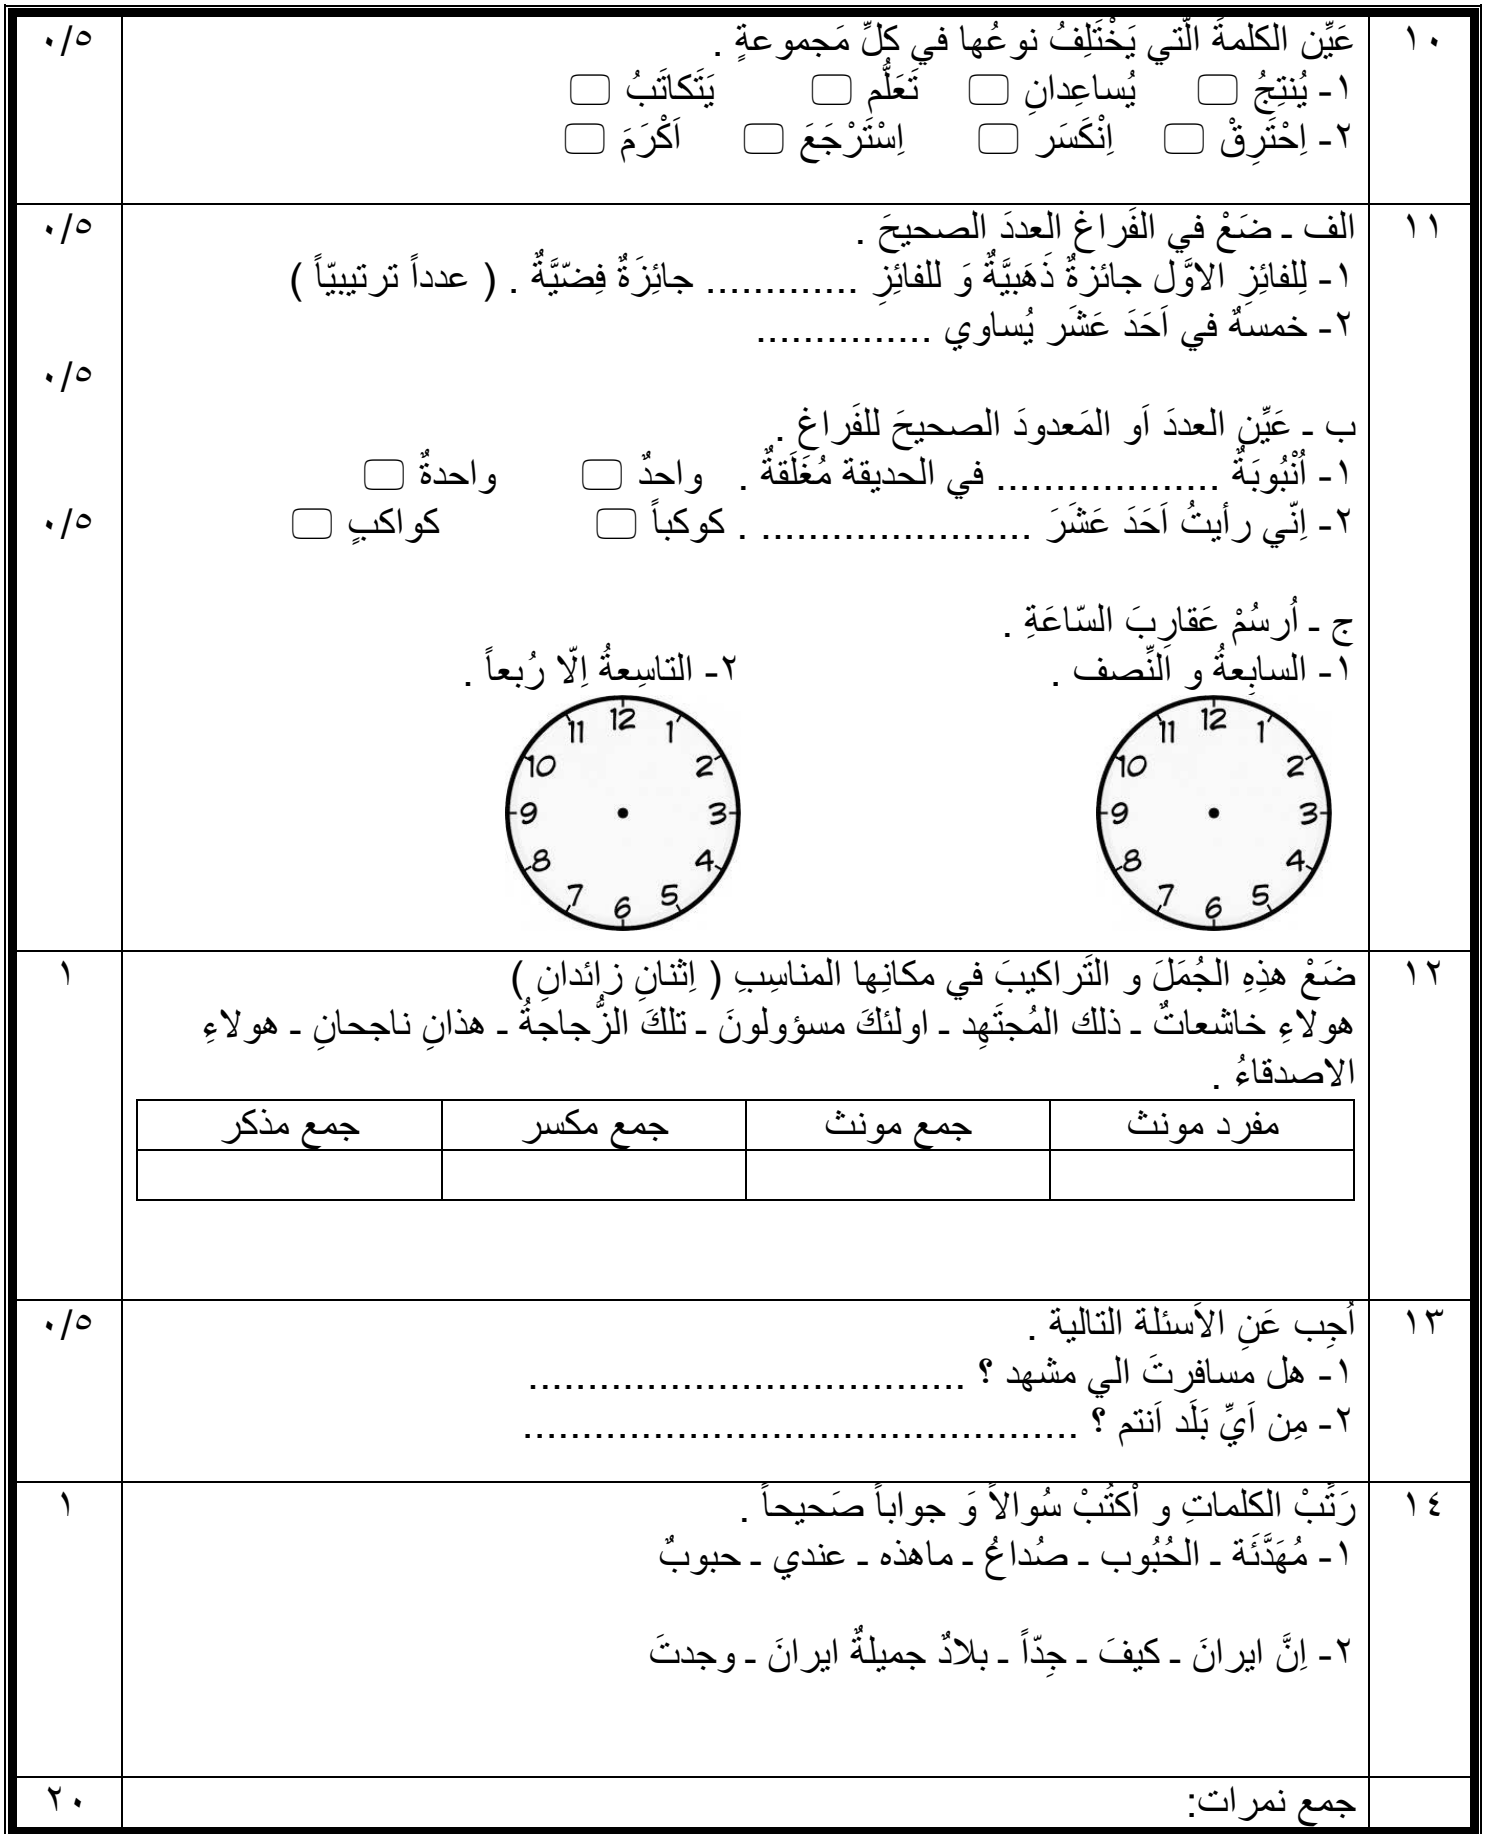 ١٠ عَيِّن الكلمةَ الّتي يَخْتَلِفُ نوعُها في كلِّ مَجموعةٍ . ٠/٥
١- يُنتِجُ يُساعِدانِ تَعَلُّم يَتَكاتَبُ
٢- اِحْتَرِقْ اِنْكَسَر اِسْتَرْجَعَ اَكْرَمَ
١١ الف ـ ضَعْ في الفَراغ العددَ الصحيحَ . ٠/٥
١- لِلفائِزِ الاوَّل جائزةٌ ذَهَبيَّةٌ وَ للفائِزِ ............. جائِزَةٌ فِضّيَّةٌ . ( عدداً ترتيبيّاً )
٢- خمسةٌ في اَحَدَ عَشَر يُساوي ...............
٠/٥
ب ـ عَيِّنِ العددَ اَو المَعدودَ الصحيحَ للفَراغ .
١- اُنْبُوبَةٌ ................... في الحديقة مُغَلَقةٌ . واحدٌ واحدةٌ
٢- اِنّي رأيتُ اَحَدَ عَشَرَ ....................... . كوكباً كواكبٍ ٠/٥
ج ـ اُرسُمْ عَقارِبَ السّاعَةِ .
١- السابِعةُ و النِّصف . ٢- التاسِعةُ اِلّا رُبعاً .
12 12
11 1 11 1
10 2 10 2
9 3 9 3
8 4 8 4
7 5 7 5
6 6
١٢ ضَعْ هذِهِ الجُمَلَ و التَراكيبَ في مكانِها المناسِبِ ( اِثنانِ زائدانِ ) ١
هولاءِ خاشعاتٌ ـ ذلك المُجتَهِد ـ اولئكَ مسؤولونَ ـ تلكَ الزُّجاجةُ ـ هذانِ ناجحانِ ـ هولاءِ
الاصدقاءُ .
مفرد مونث جمع مونث جمع مكسر جمع مذكر
١٣ اَجِب عَنِ الاَسئلة التالية . ٠/٥
١- هل مسافرتَ الي مشهد ؟ .....................................
٢- مِن اَيِّ بَلَد اَنتم ؟ ...............................................
١٤ رَتِّبْ الكلماتِ و اْكتُبْ سُوالاً وَ جواباً صَحيحاً . ١
١- مُهَدَّئَة ـ الحُبُوب ـ صُداعُ ـ ماهذه ـ عندي ـ حبوبٌ
٢- اِنَّ ايرانَ ـ كيفَ ـ جِدّاً ـ بلادٌ جميلةٌ ايرانَ ـ وجدتَ
جمع نمرات: ٢٠